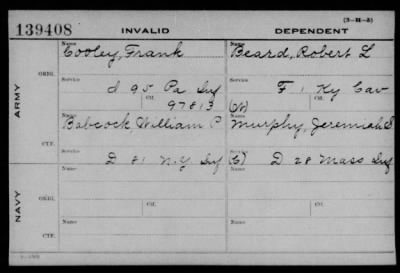 (3-H-5)
139408 INVALID DEPENDENT
Name Name
Cooley, Frank Beard, Robert L
ORIG.
Service Service
I 95 Pa Inf F 1 Ky Cav
Ctf. Ctf.
97813 (W)
ARMY
Name Name
Babcock William P. Murphy, Jeremiah S
CTF.
Service Service
D 81 N.Y. Inf (C) D 28 Mass Inf
Name Name
ORIG.
Ctf. Ctf.
NAVY
Name Name
CTF.